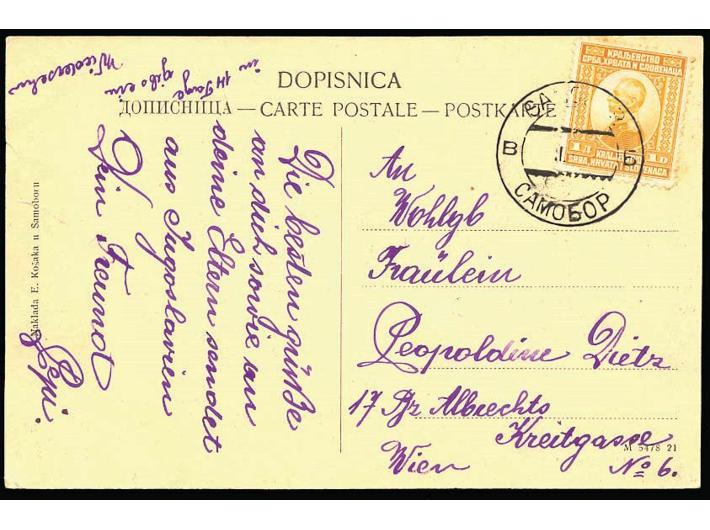 Wiedersehn
in 14 Tage
DOPISNICA
ДОПИСНИЦА — CARTE POSTALE — POSTKARTE
Die besten grüße
an dich sowie an
deine Eltern sendet
aus Jugoslavien
Dein Freund
Pepi.
Naklada E. Košaka u Samoboru
КРАЉЕВСТВО
СРБА, ХРВАТА И СЛОВЕНАЦА
1 Д
1 D
KRALJEVSTVO
SRBA, HRVATA I SLOVENACA
В
Б
САМОБОР
An
Wohlgb
Fräulein
Leopoldine Dietz
17 Bz Albrechts
Kreitgasse
No 6.
Wien
M 5478 21